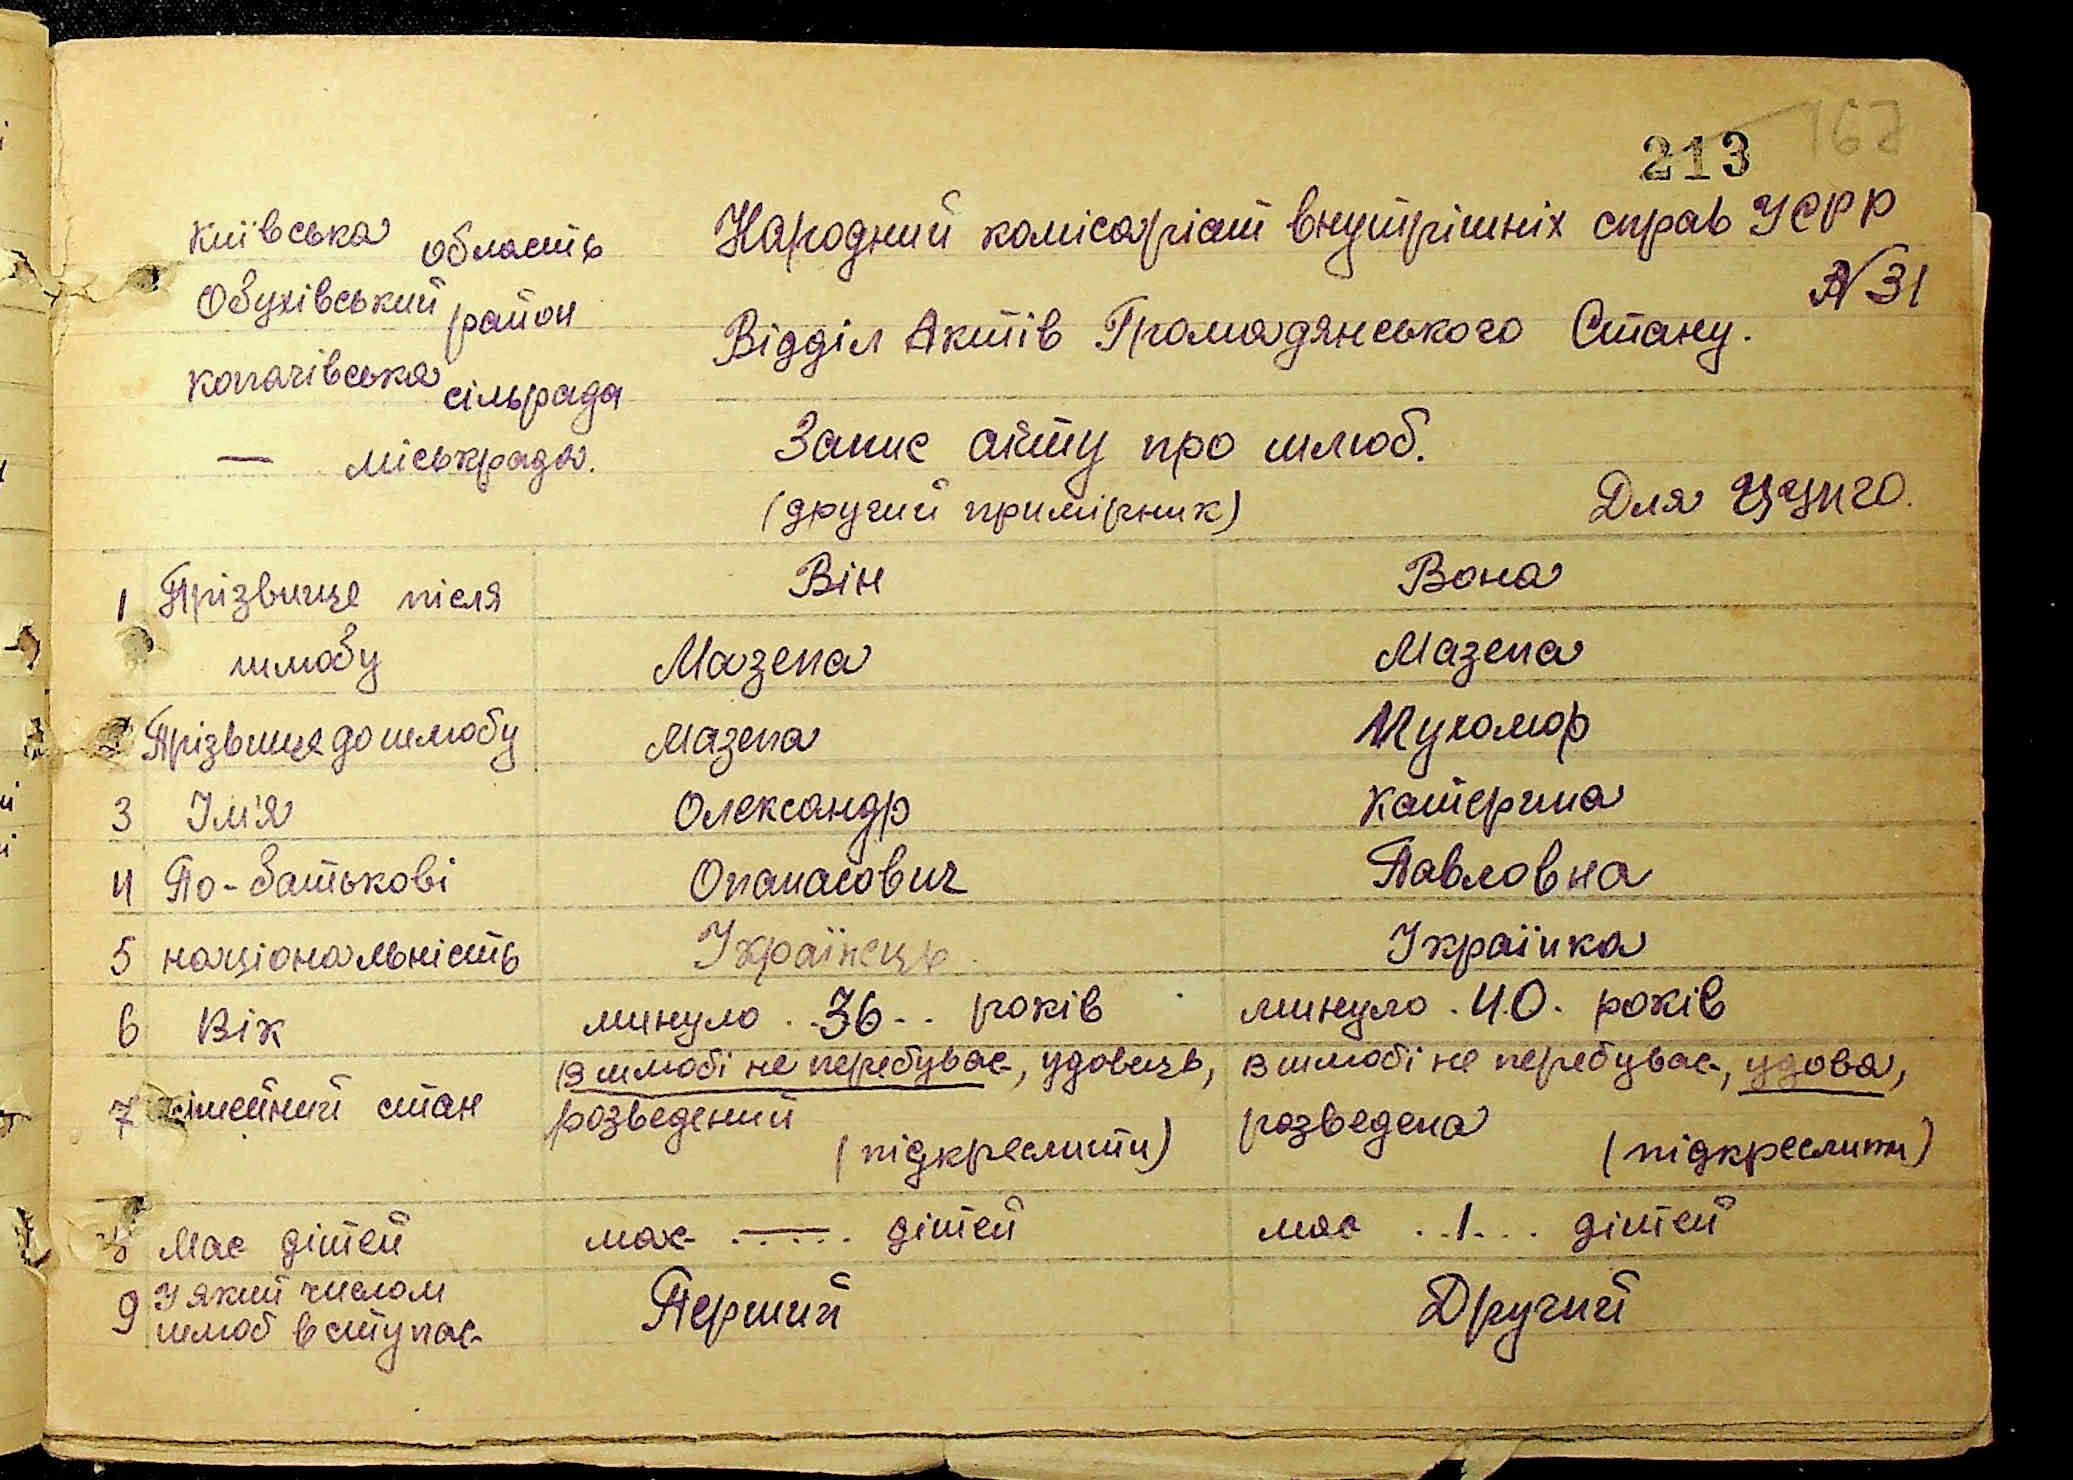 213 167
Київська область
Обухівський район
Копачівська сільрада
— міськрада.
Народний комісаріат внутрішніх справ УСРР
№31
Відділ Актів Громадянського Стану.
Запис акту про шлюб.
(другий примірник)
Для ЦУНГО.
Він Вона
1 Прізвище після
шлюбу Мазепа Мазепа
2 Прізвище до шлюбу Мазепа Мухомор
3 Ім'я Олександр Катерина
4 По-батькові Опанасович Павловна
5 національність Українець Українка
6 Вік минуло . . 36 . . років минуло . 40 . років
7 сімейний стан В шлюбі не перебуває, удовець, В шлюбі не перебуває, удова,
розведений розведена
(підкреслити) (підкреслити)
8 Має дітей має . — . дітей має . . 1 . . . дітей
9 У який числом
шлюб вступає Перший Другий